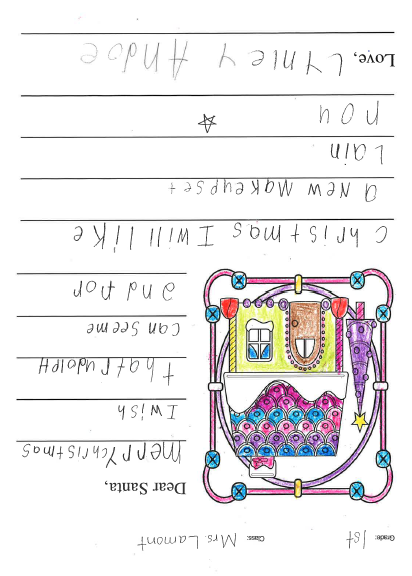 Grade: 1st Class: Mrs. Lamont
Dear Santa,
merry christmas
I wish
that rudolpH
can seeme
and for
christmas I will like
a new makeupset
Lain
nou
Love, Lynley Andoe